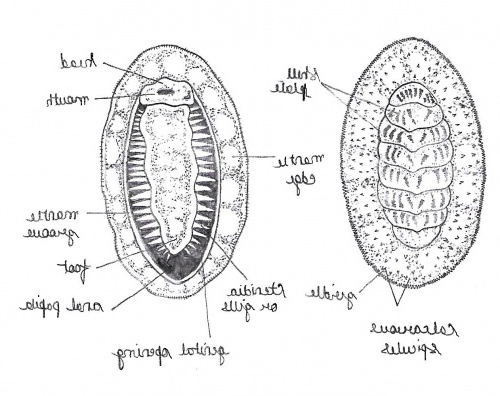 head
mouth
mantle
groove
foot
anal papila
genital opening
ctenidia
or gills
mantle
edge
shell
plate
girdle
calcareous
spicules